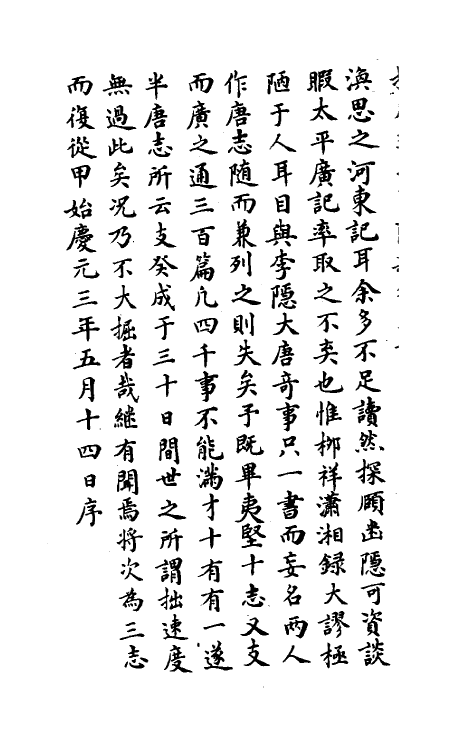 渙思之河東記耳余多不足讀然探賾幽隱可資談
暇太平廣記率取之不棄也惟栁祥瀟湘録大謬極
陋于人耳目與李隱大唐竒事只一書而妄名兩人
作唐志随而兼列之則失矣予既畢夷堅十志又支
而廣之通三百篇凡四千事不能滿才十有有一遂
半唐志所云支癸成于三十日間世之所謂拙速度
無過此矣况乃不大掘者哉継有聞焉将次為三志
而復從甲始慶元三年五月十四日序